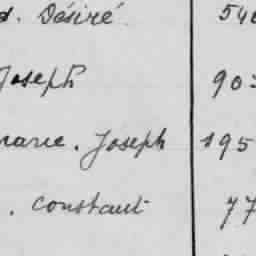 d. Désiré 540
Joseph 90
marie. Joseph 195
. Constant 77